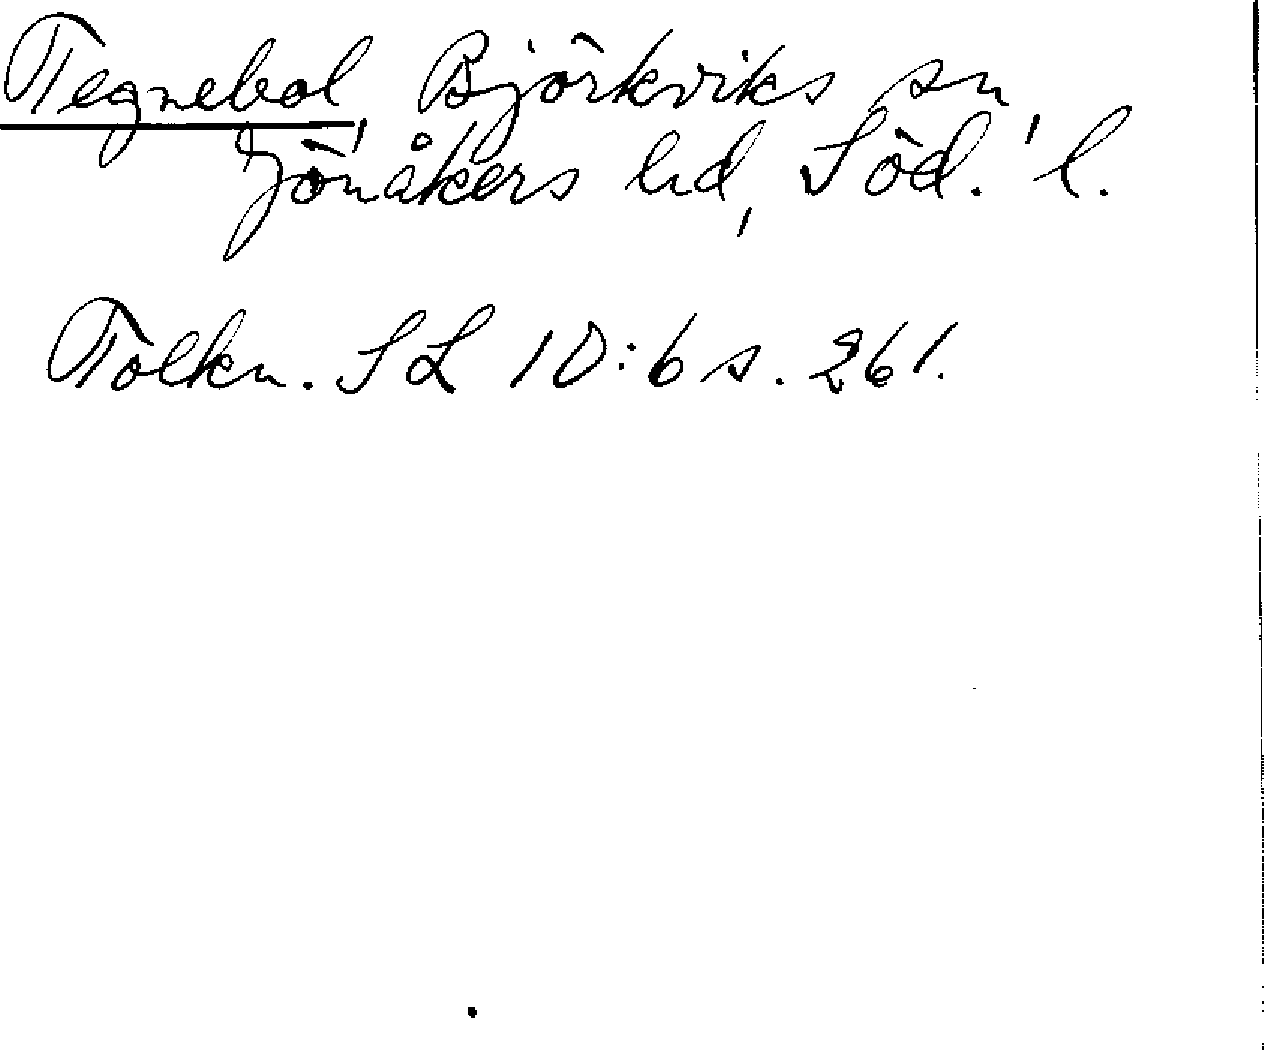 Tegnebol, Björkviks sn,
Jönåkers hd, Söd. l.
Tolkn. SL 10:6 s. 261.